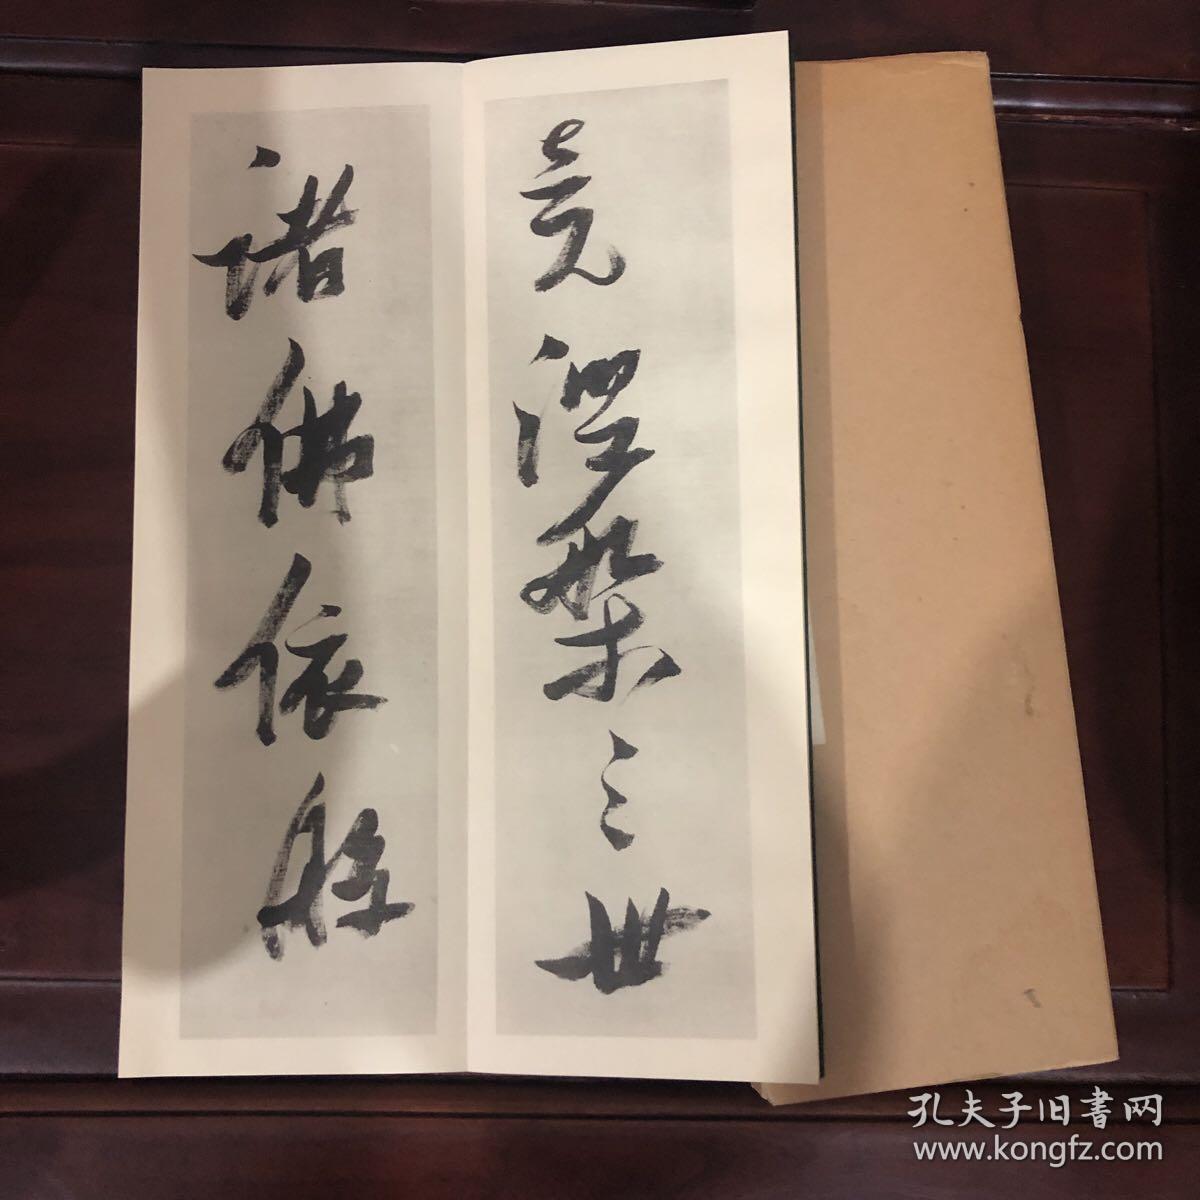 竟涅槃三世
諸佛依般
孔夫子旧書网
www.kongfz.com